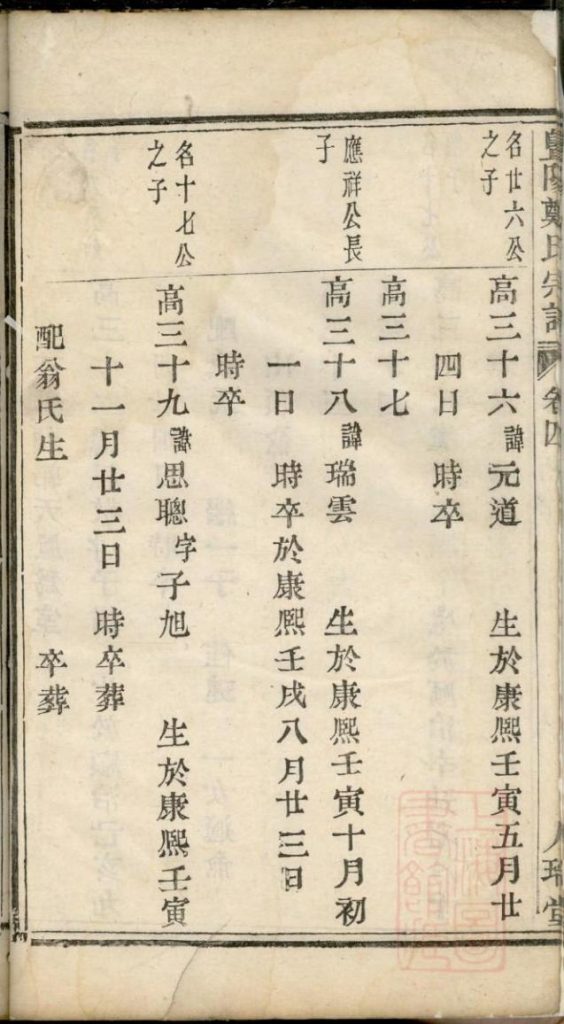 暨陽鄭氏宗譜 卷四 人瑞堂
名廿六公
之子
高三十六 諱元道 生於康熙壬寅五月廿
四日 時卒
高三十七
應祥公長
子
高三十八 諱瑞雲 生於康熙壬寅十月初
一日 時卒於康熙壬戌八月廿三日
時卒
名十七公
之子
高三十九 諱思聰字子旭 生於康熙壬寅
十一月廿三日 時卒葬
配翁氏生 卒葬